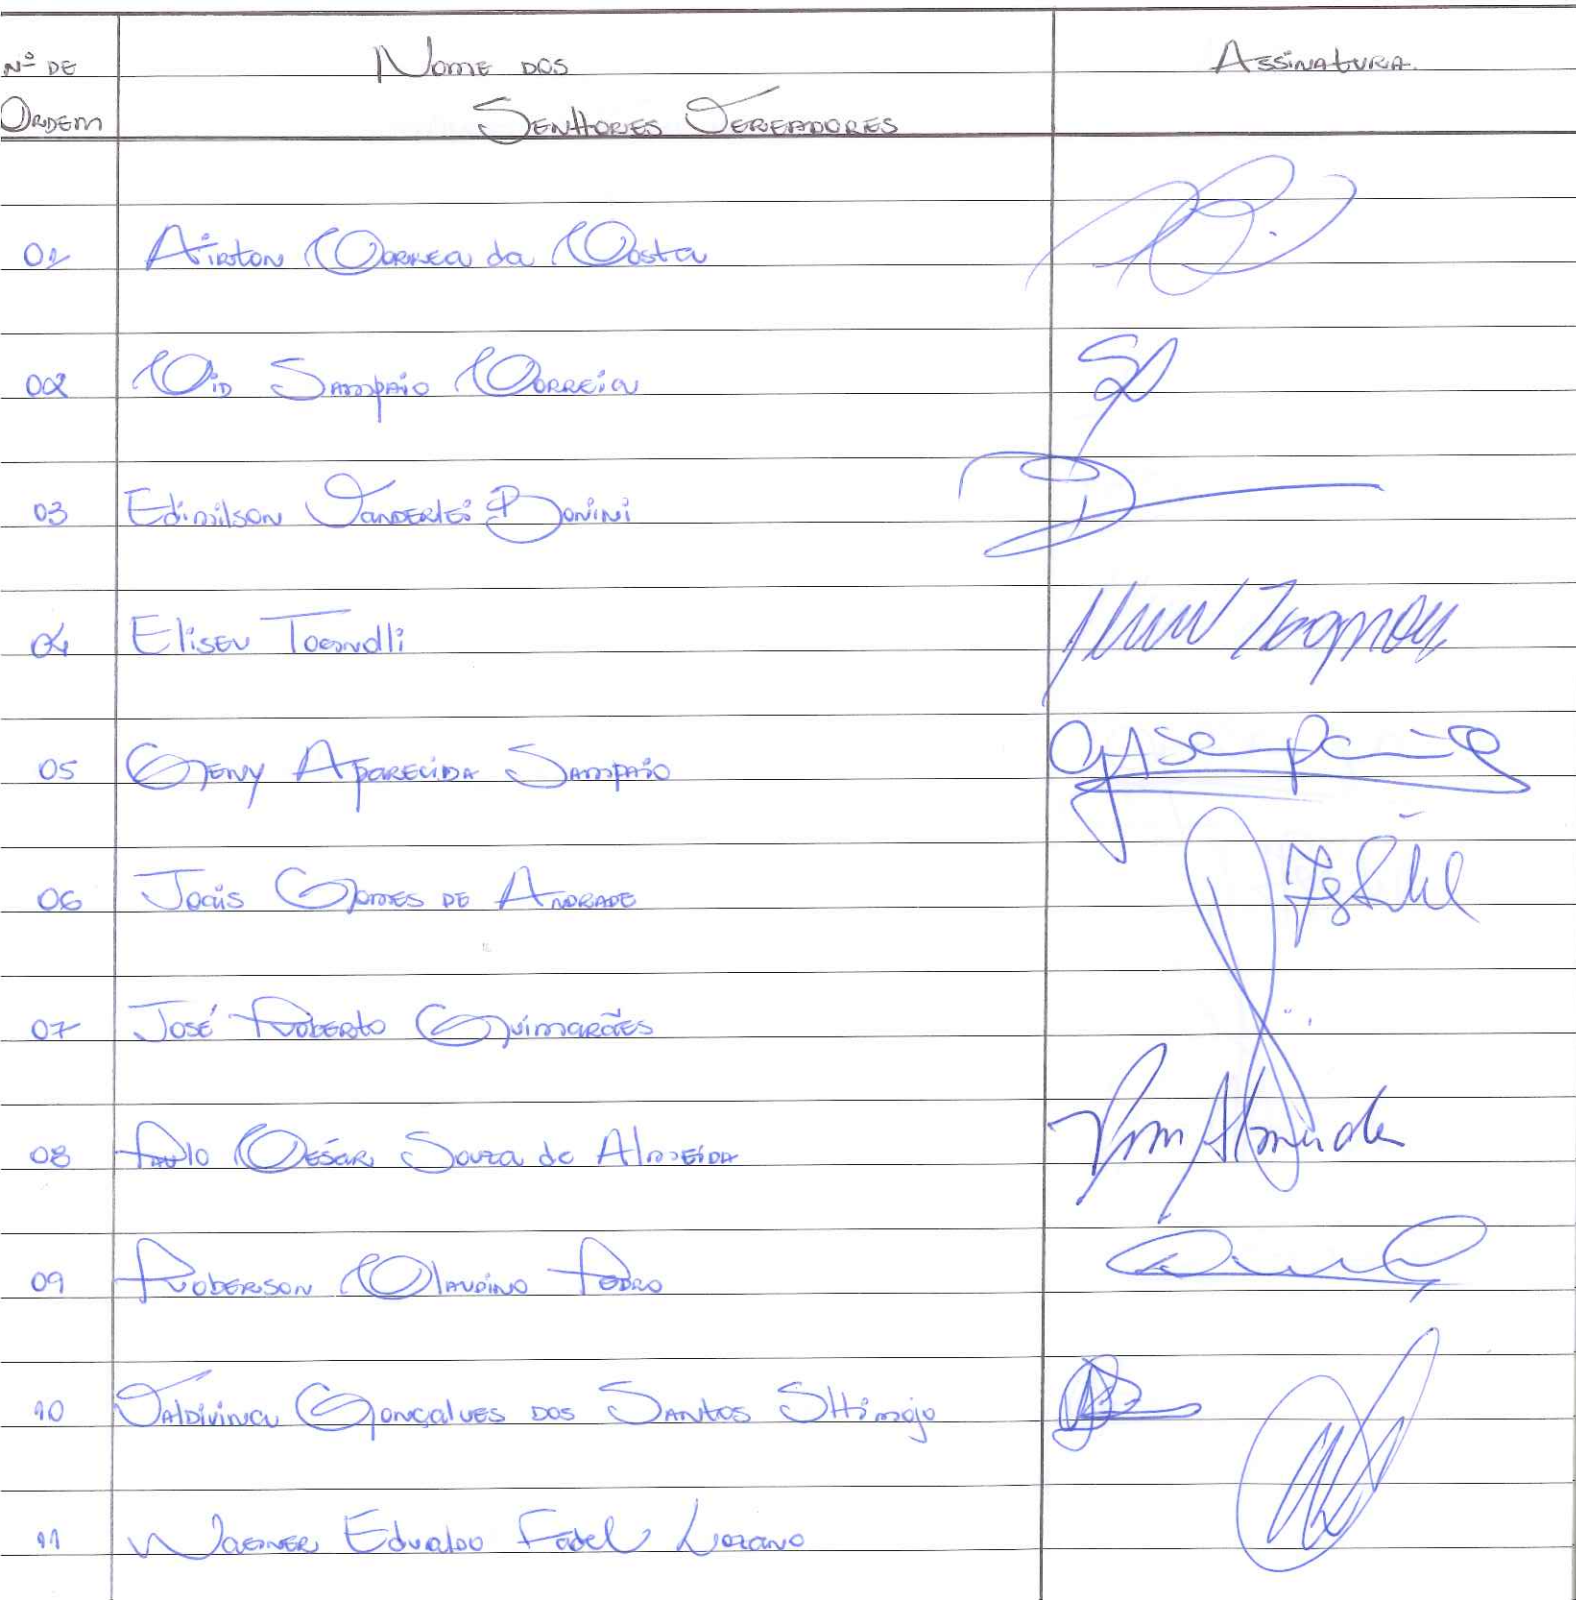 Nº DE Nome dos Assinatura
Ordem Senhores Vereadores
01 Airton Correa da Costa
02 Cid Sampaio Correia
03 Edimilson Vanderlei Bonini
04 Eliseu
05 Geny Aparecida Sampaio
06 Jocis Gomes de Andrade
07 José Roberto Guimarães
08 Paulo César Souza de Almeida
09 Roberson Claudino Pedro
10 Valdivina Gonçalves dos Santos SHimojo
11 Wagner Edvaldo Fadel Lozano